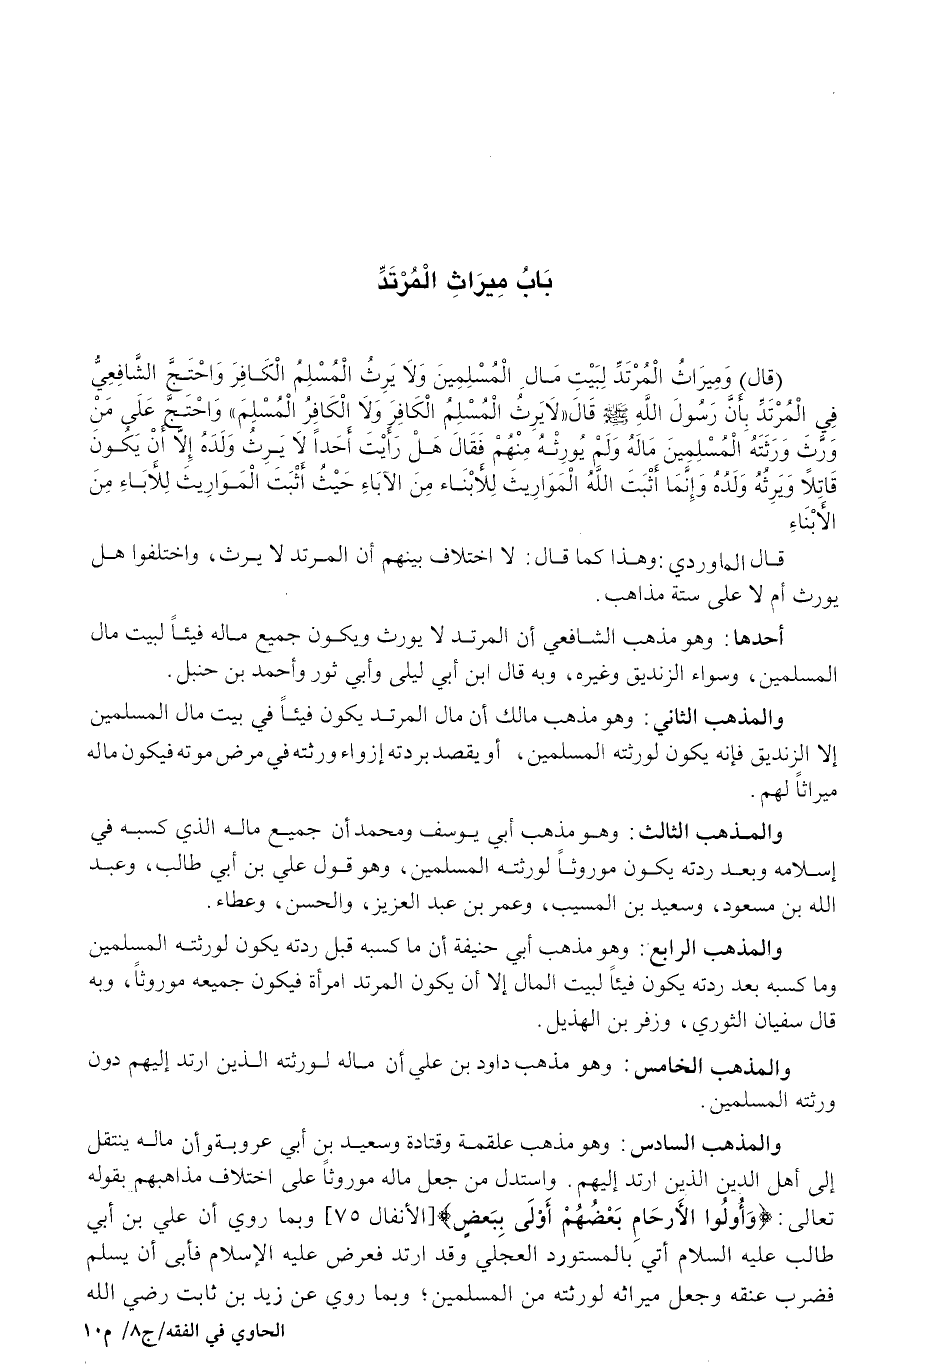 بَابُ مِيرَاثِ الْمُرْتَدِّ
(قال) وَمِيرَاثُ الْمُرْتَدِّ لِبَيْتِ مَالِ الْمُسْلِمِينَ وَلَا يَرِثُ الْمُسْلِمُ الْكَافِرَ وَاحْتَجَّ الشَّافِعِيُّ
فِي الْمُرْتَدِّ بِأَنَّ رَسُولَ اللَّهِ ﷺ قَالَ«لَايَرِثُ الْمُسْلِمُ الْكَافِرَ وَلَا الْكَافِرُ الْمُسْلِمَ» وَاحْتَجَّ عَلَى مَنْ
وَرَّثَ وَرَثَتَهُ الْمُسْلِمِينَ مَالَهُ وَلَمْ يُورِثْهُ مِنْهُمْ فَقَالَ هَلْ رَأَيْتَ أَحَداً لَا يَرِثُ وَلَدَهُ إِلَّا أَنْ يَكُونَ
قَاتِلاً وَيَرِثُهُ وَلَدُهُ وَإِنَّمَا أَثْبَتَ اللَّهُ الْمَوَارِيثَ لِلْأَبْنَاء مِنَ الآبَاءِ حَيْثُ أَثْبَتَ الْمَوَارِيثَ لِلْأَبَاءِ مِنَ
الْأَبْنَاءِ
قال الماوردي :وهذا كما قال: لا اختلاف بينهم أن المرتد لا يرث، واختلفوا هل
يورث أم لا على ستة مذاهب.
أحدها: وهو مذهب الشافعي أن المرتد لا يورث ويكون جميع ماله فيئاً لبيت مال
المسلمين، وسواء الزنديق وغيره، وبه قال ابن أبي ليلى وأبي ثور وأحمد بن حنبل.
والمذهب الثاني: وهو مذهب مالك أن مال المرتد يكون فيئاً في بيت مال المسلمين
إلا الزنديق فإنه يكون لورثته المسلمين، أو يقصد بردته إزواء ورثته في مرض موته فيكون ماله
ميراثاً لهم.
والمذهب الثالث: وهو مذهب أبي يوسف ومحمد أن جميع ماله الذي كسبه في
إسلامه وبعد ردته يكون موروثاً لورثته المسلمين، وهو قول علي بن أبي طالب، وعبد
الله بن مسعود، وسعيد بن المسيب، وعمر بن عبد العزيز، والحسن، وعطاء.
والمذهب الرابع: وهو مذهب أبي حنيفة أن ما كسبه قبل ردته يكون لورثته المسلمين
وما كسبه بعد ردته يكون فيئاً لبيت المال إلا أن يكون المرتد امرأة فيكون جميعه موروثاً، وبه
قال سفيان الثوري، وزفر بن الهذيل.
والمذهب الخامس: وهو مذهب داود بن علي أن ماله لورثته الذين ارتد إليهم دون
ورثته المسلمين.
والمذهب السادس: وهو مذهب علقمة وقتادة وسعيد بن أبي عروبة وأن ماله ينتقل
إلى أهل الدين الذين ارتد إليهم. واستدل من جعل ماله موروثاً على اختلاف مذاهبهم بقوله
تعالى: ﴿وَأُولُوا الأَرحَامِ بَعْضُهُمْ أَوْلَى بِبَعضٍ﴾[الأنفال ٧٥] وبما روي أن علي بن أبي
طالب عليه السلام أتي بالمستورد العجلي وقد ارتد فعرض عليه الإسلام فأبى أن يسلم
فضرب عنقه وجعل ميراثه لورثته من المسلمين؛ وبما روي عن زيد بن ثابت رضي الله
الحاوي في الفقه/ ج٨/ م١٠